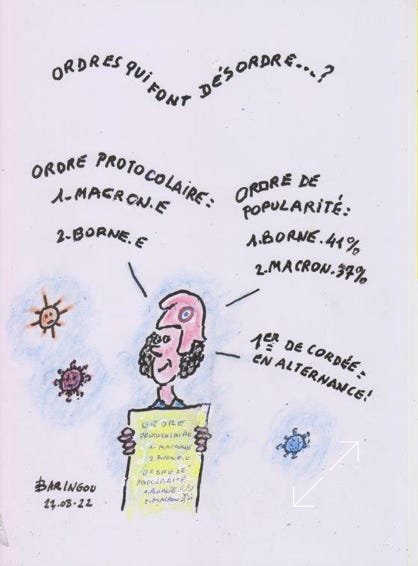 ORDRES QUI FONT DÉSORDRE....?
ORDRE PROTOCOLAIRE:
1-MACRON.E
2-BORNE.E
ORDRE DE
POPULARITÉ:
1.BORNE.41%
2.MACRON.37%
1ER DE CORDÉE.
EN ALTERNANCE!
ORDRE
PROTOCOLAIRE
1-MACRON.E
2.BORNE.E
ORDRE DE
POPULARITÉ
1.BORNE
2.MACRON
BARINGOU
27.08.22